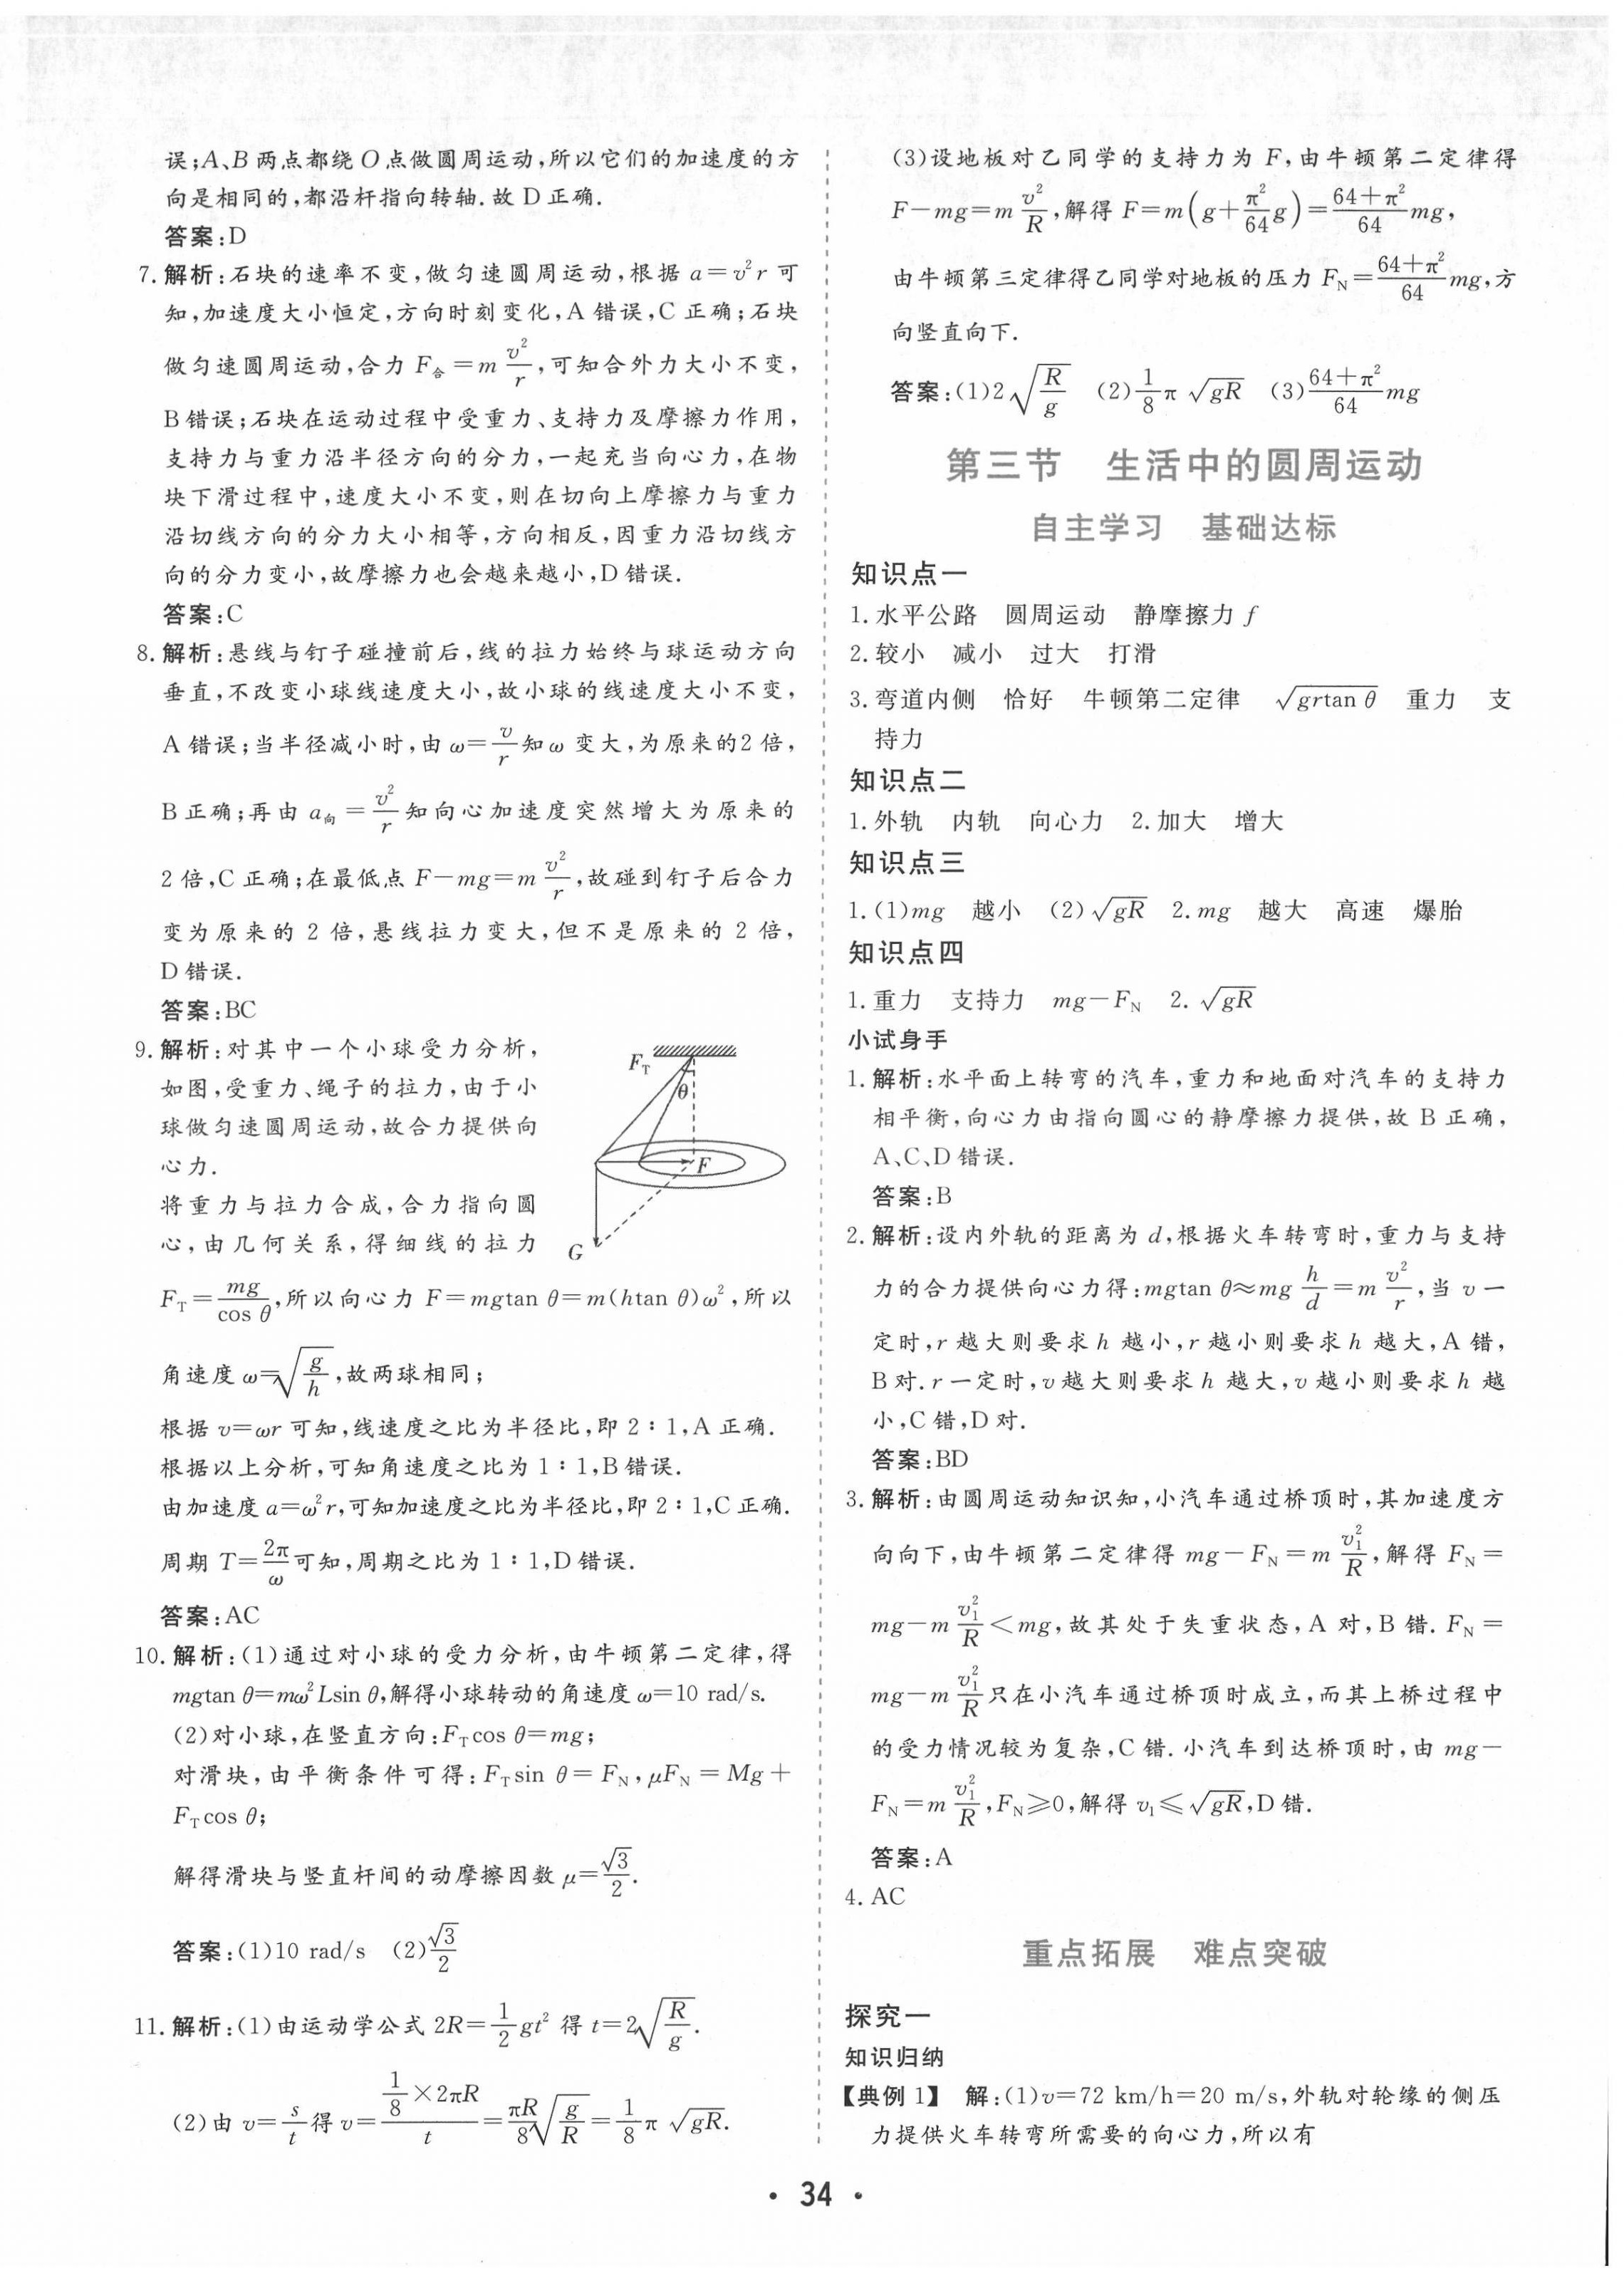 误;A、B两点都绕O点做圆周运动,所以它们的加速度的方
向是相同的,都沿杆指向转轴.故D正确.
答案:D
7.解析:石块的速率不变,做匀速圆周运动,根据 a=v²r 可
知,加速度大小恒定,方向时刻变化,A错误,C正确;石块
做匀速圆周运动,合力 F合=m v²/r,可知合外力大小不变,
B错误;石块在运动过程中受重力、支持力及摩擦力作用,
支持力与重力沿半径方向的分力,一起充当向心力,在物
块下滑过程中,速度大小不变,则在切向上摩擦力与重力
沿切线方向的分力大小相等,方向相反,因重力沿切线方
向的分力变小,故摩擦力也会越来越小,D错误.
答案:C
8.解析:悬线与钉子碰撞前后,线的拉力始终与球运动方向
垂直,不改变小球线速度大小,故小球的线速度大小不变,
A错误;当半径减小时,由 ω=v/r 知 ω 变大,为原来的2倍,
B正确;再由 a向=v²/r 知向心加速度突然增大为原来的
2倍,C正确;在最低点 F-mg=m v²/r,故碰到钉子后合力
变为原来的 2 倍,悬线拉力变大,但不是原来的 2 倍,
D错误.
答案:BC
9.解析:对其中一个小球受力分析,
如图,受重力、绳子的拉力,由于小
球做匀速圆周运动,故合力提供向
心力.
将重力与拉力合成,合力指向圆
心,由几何关系,得细线的拉力
F_T
θ
F
G
F_T=mg/cos θ,所以向心力 F=mgtan θ=m(htan θ)ω²,所以
角速度 ω=√(g/h),故两球相同;
根据 v=ωr 可知,线速度之比为半径比,即 2∶1,A正确.
根据以上分析,可知角速度之比为 1∶1,B错误.
由加速度 a=ω²r,可知加速度之比为半径比,即 2∶1,C正确.
周期 T=2π/ω可知,周期之比为 1∶1,D错误.
答案:AC
10.解析:(1)通过对小球的受力分析,由牛顿第二定律,得
mgtan θ=mω²Lsin θ,解得小球转动的角速度 ω=10 rad/s.
(2)对小球,在竖直方向:F_Tcos θ=mg;
对滑块,由平衡条件可得:F_Tsin θ=F_N,μF_N=Mg+
F_Tcos θ;
解得滑块与竖直杆间的动摩擦因数 μ=√3/2.
答案:(1)10 rad/s (2)√3/2
11.解析:(1)由运动学公式 2R=1/2 gt² 得 t=2√(R/g).
(2)由 v=s/t 得 v=(1/8×2πR)/t=πR/8 √(g/R)=1/8 π √gR.
(3)设地板对乙同学的支持力为 F,由牛顿第二定律得
F-mg=m v²/R,解得 F=m(g+π²/64 g)=(64+π²)/64 mg,
由牛顿第三定律得乙同学对地板的压力 F_N=(64+π²)/64 mg,方
向竖直向下.
答案:(1)2√(R/g) (2)1/8 π √gR (3)(64+π²)/64 mg
第三节 生活中的圆周运动
自主学习 基础达标
知识点一
1.水平公路 圆周运动 静摩擦力 f
2.较小 减小 过大 打滑
3.弯道内侧 恰好 牛顿第二定律 √(grtan θ) 重力 支
持力
知识点二
1.外轨 内轨 向心力 2.加大 增大
知识点三
1.(1)mg 越小 (2)√gR 2.mg 越大 高速 爆胎
知识点四
1.重力 支持力 mg-F_N 2.√gR
小试身手
1.解析:水平面上转弯的汽车,重力和地面对汽车的支持力
相平衡,向心力由指向圆心的静摩擦力提供,故B正确,
A、C、D错误.
答案:B
2.解析:设内外轨的距离为 d,根据火车转弯时,重力与支持
力的合力提供向心力得:mgtan θ≈mg h/d=m v²/r,当 v 一
定时,r 越大则要求 h 越小,r 越小则要求 h 越大,A错,
B对.r 一定时,v 越大则要求 h 越大,v 越小则要求 h 越
小,C错,D对.
答案:BD
3.解析:由圆周运动知识知,小汽车通过桥顶时,其加速度方
向向下,由牛顿第二定律得 mg-F_N=m v₁²/R,解得 F_N=
mg-m v₁²/R<mg,故其处于失重状态,A对,B错.F_N=
mg-m v₁²/R只在小汽车通过桥顶时成立,而其上桥过程中
的受力情况较为复杂,C错.小汽车到达桥顶时,由 mg-
F_N=m v₁²/R,F_N≥0,解得 v₁≤√gR,D错.
答案:A
4.AC
重点拓展 难点突破
探究一
知识归纳
【典例1】 解:(1)v=72 km/h=20 m/s,外轨对轮缘的侧压
力提供火车转弯所需要的向心力,所以有
• 34 •